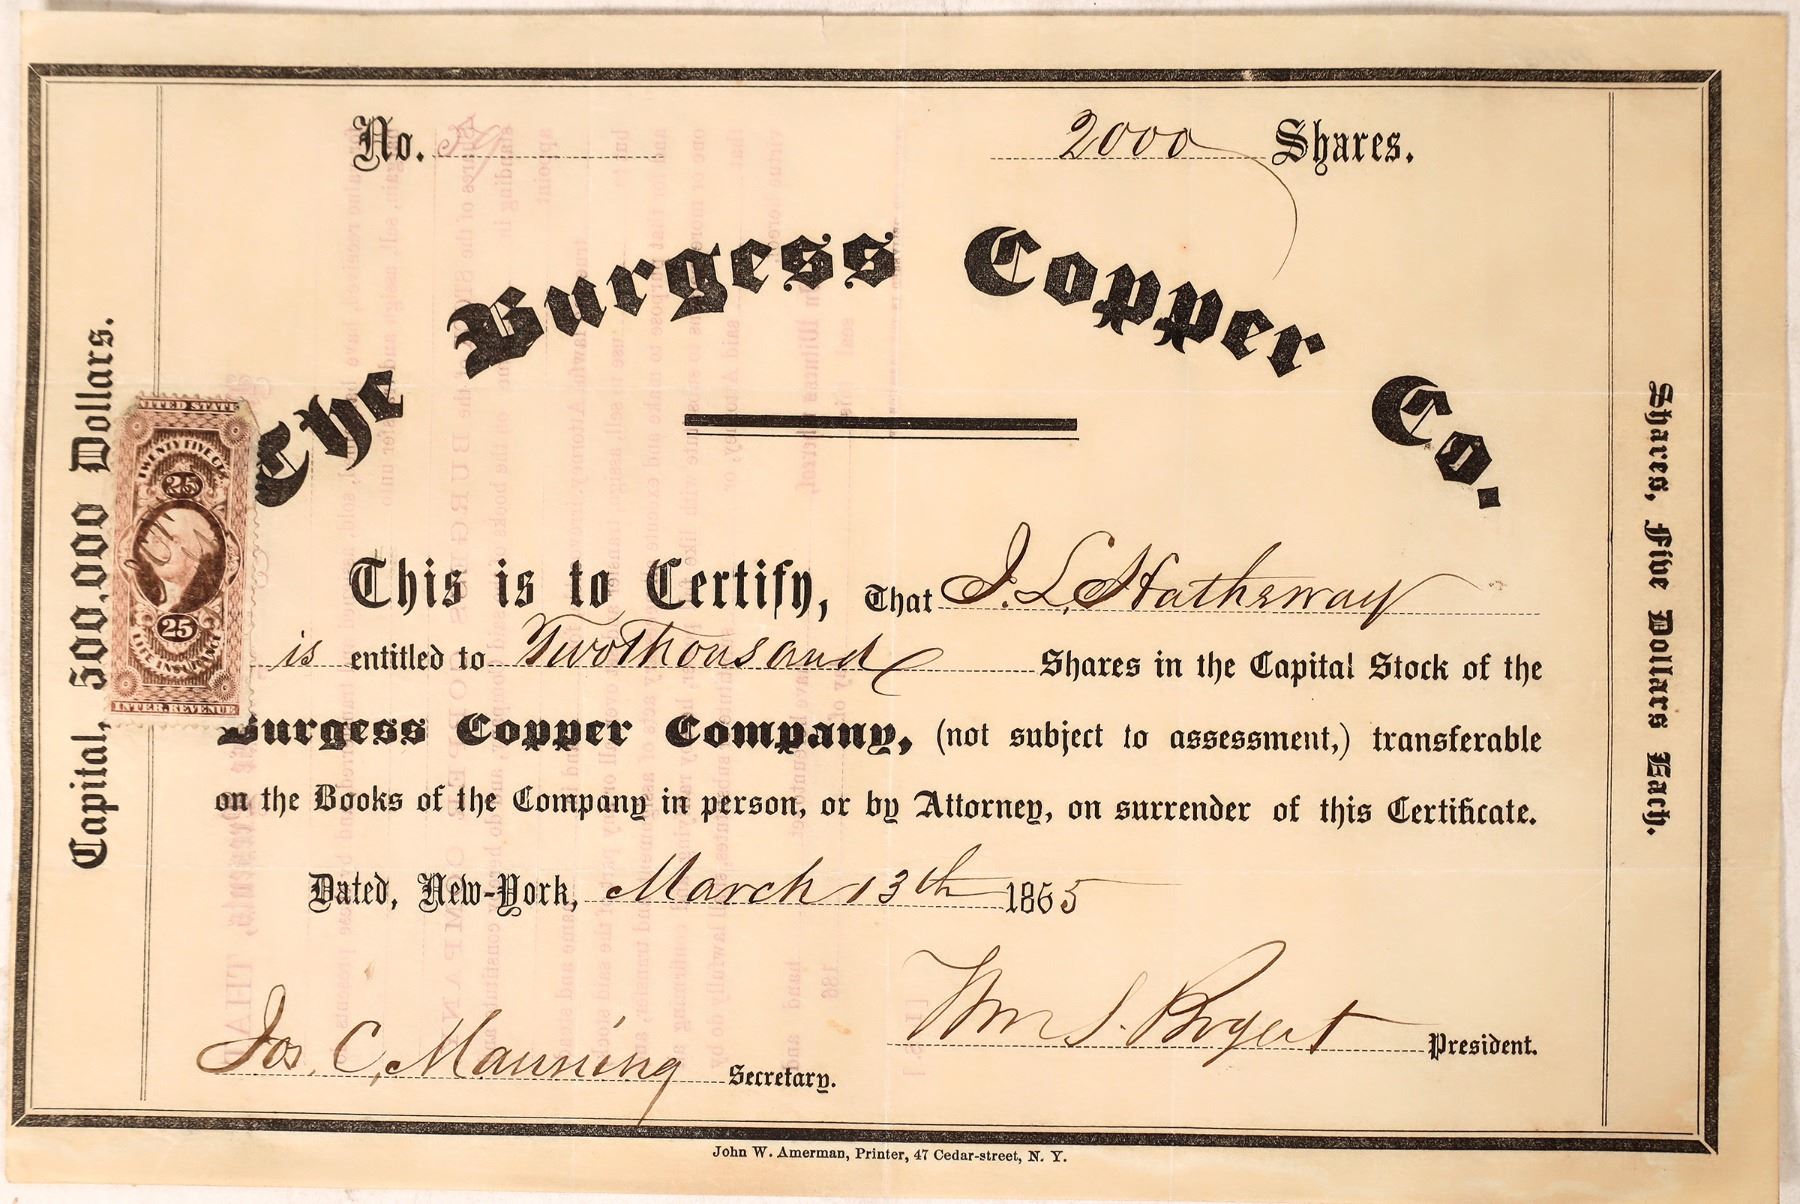 No. 59 2000 Shares.
The Burgess Copper Co.
Capital, 500,000 Dollars.
UNITED STATES
TWENTY FIVE CTS.
25
25
LIFE INSURANCE
INTER. REVENUE
This is to Certify, That J. L. Hathaway
is entitled to Two Thousand Shares in the Capital Stock of the
Burgess Copper Company, (not subject to assessment,) transferable
on the Books of the Company in person, or by Attorney, on surrender of this Certificate.
Dated, New-York, March 13th 1865
Jos. C. Manning Secretary.
Wm S. Bogert President.
Shares, Five Dollars Each.
John W. Amerman, Printer, 47 Cedar-street, N. Y.